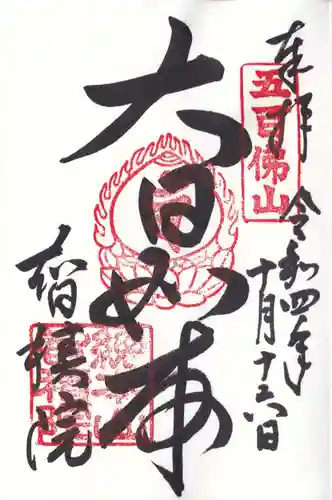 奉拝 令和四年
十月十六日
五百佛山
大日如来
智積院